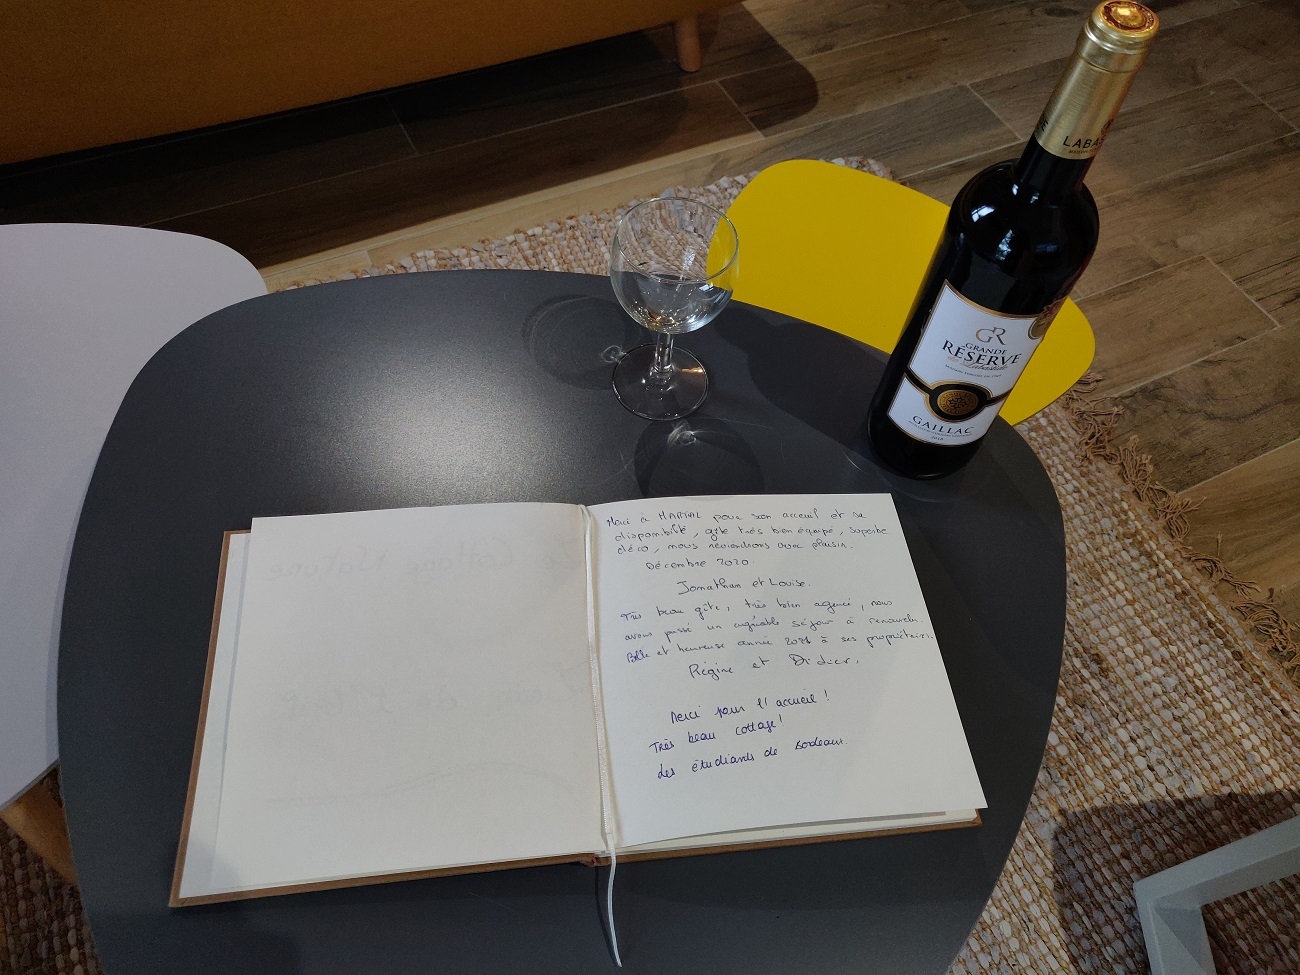 Merci à MARTIAL pour son acceuil et sa
disponibilité, gîte très bien équipé, superbe
déco, nous reviendrons avec plaisir.
Décembre 2020.
Jonathan et Louise.
Très beau gîte, très bien agencé, nous
avons passé un agréable séjour à renouveler.
Belle et heureuse année 2021 à ses propriétaires.
Régine et Didier.
Merci pour l'accueil !
Très beau cottage !
Les étudiants de Bordeaux.
LABAS
GR
GRANDE
RÉSERVE
de Labastide
GAILLAC
2018